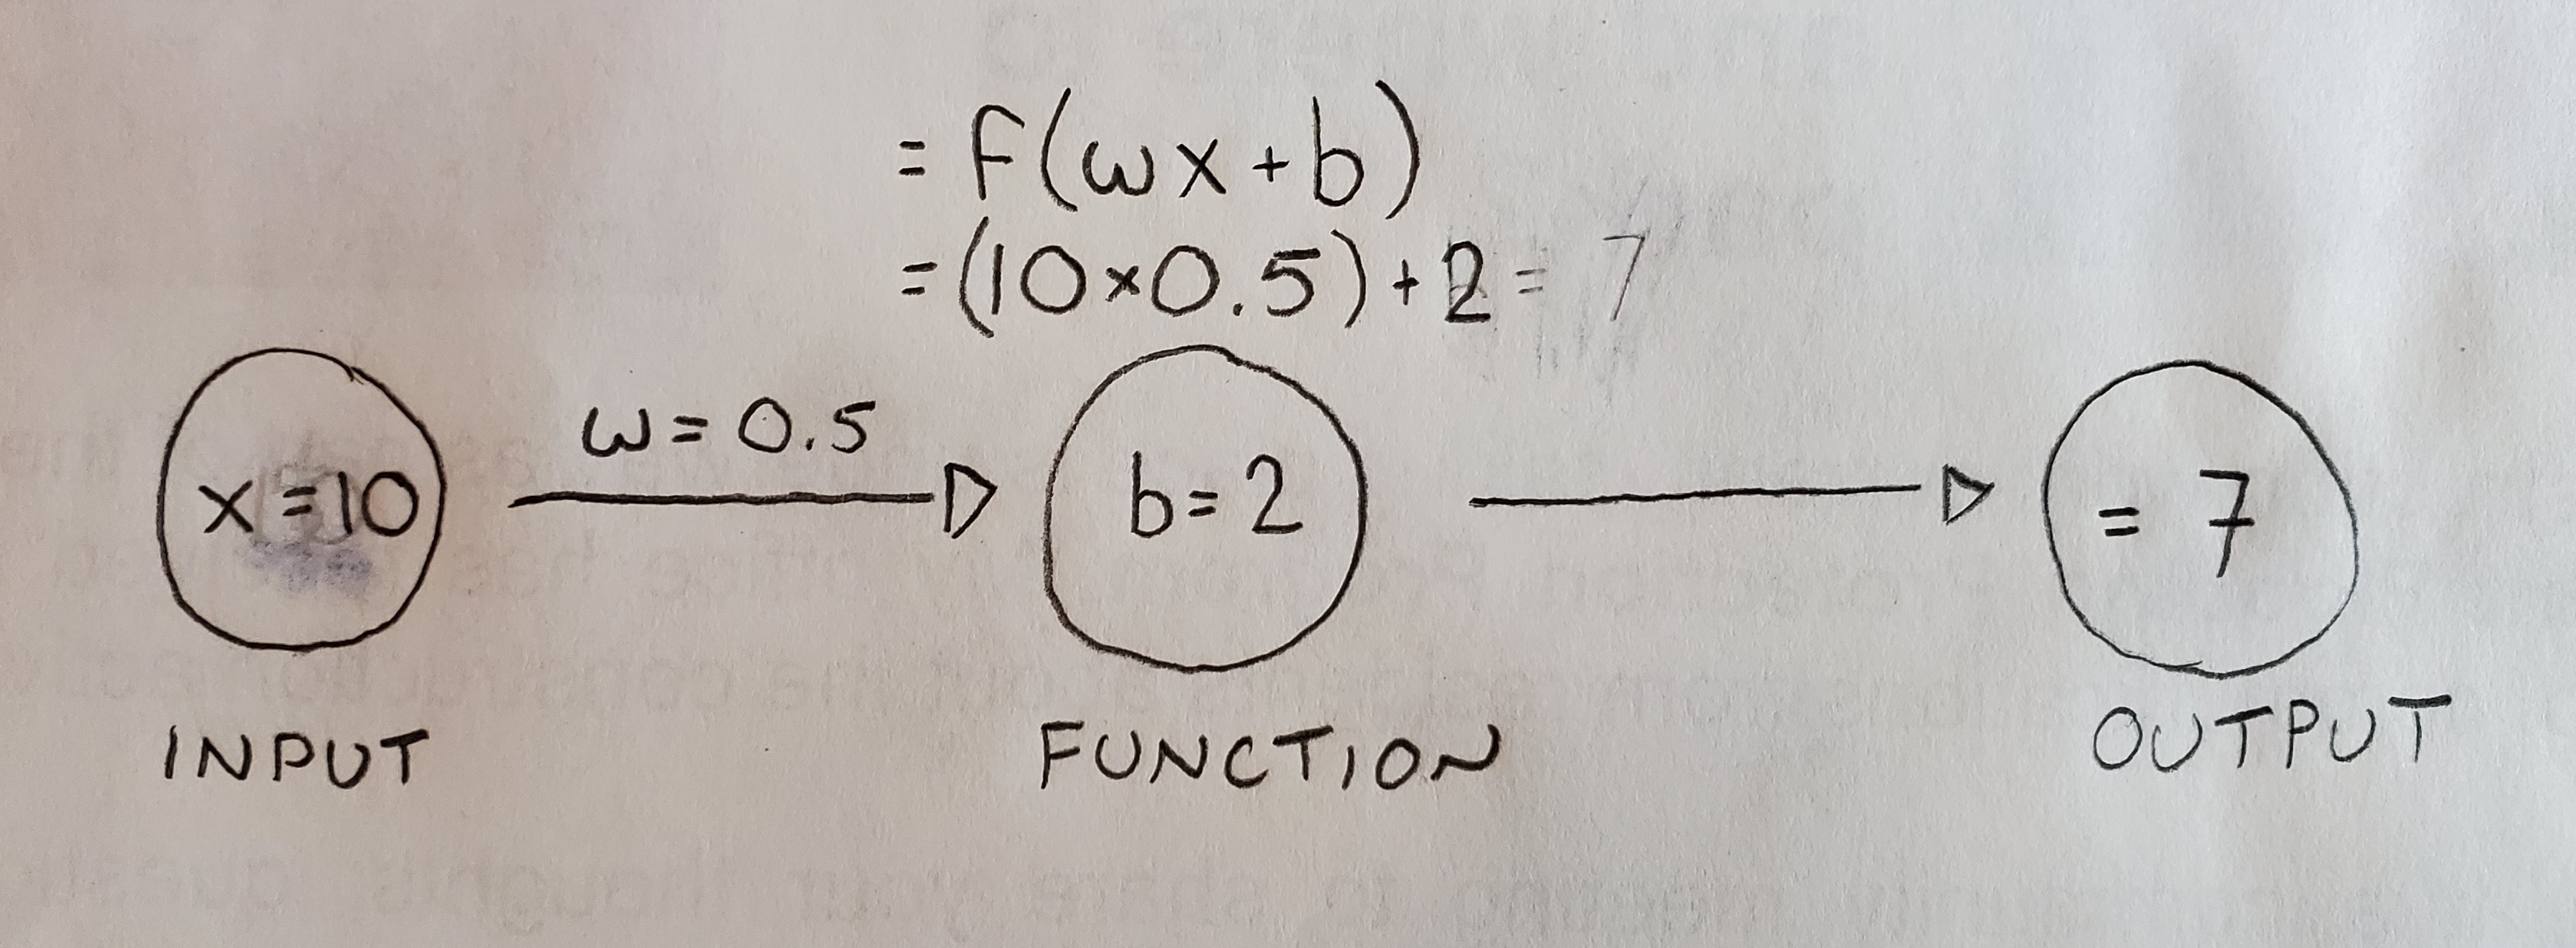 = F(wx+b)
=(10×0.5)+2 = 7
w= 0.5
x=10
b=2
= 7
INPUT
FUNCTION
OUTPUT